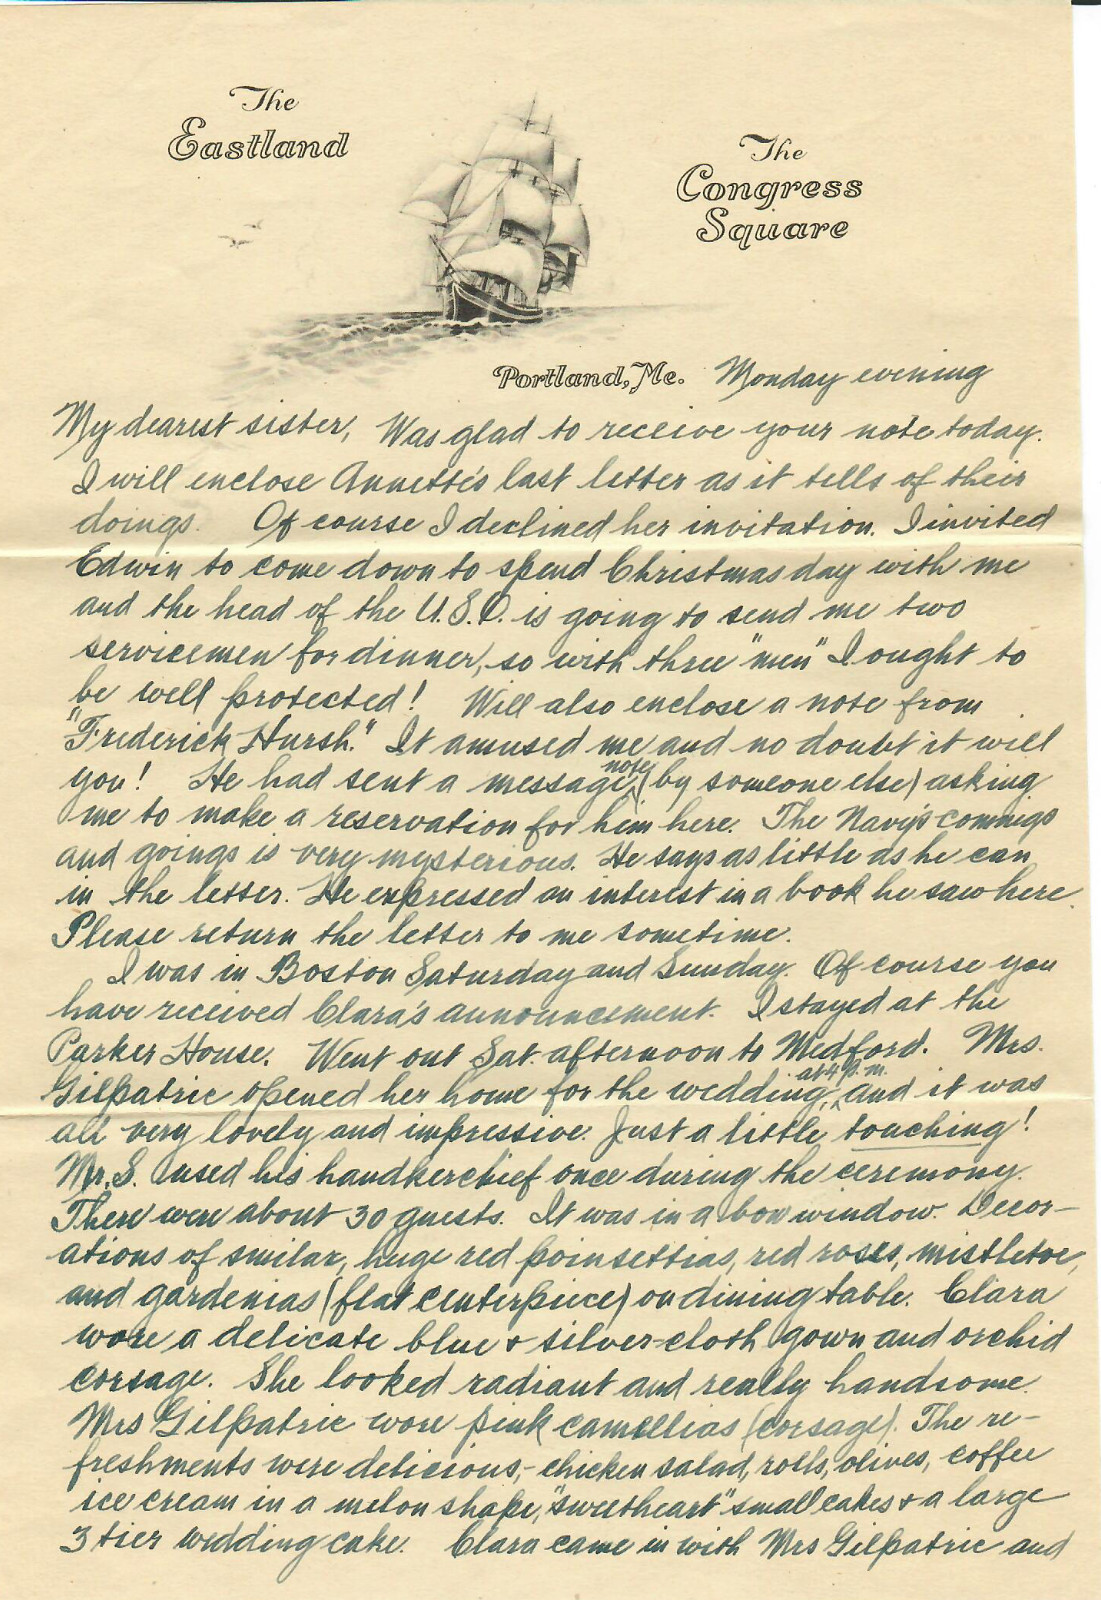 The
Eastland
The
Congress
Square
Portland, Me. Monday evening
My dearest sister, Was glad to receive your note today.
I will enclose Annette's last letter as it tells of their
doings. Of course I declined her invitation. I invited
Edwin to come down to spend Christmas day with me
and the head of the U.S.O. is going to send me two
servicemen for dinner, so with three "men" I ought to
be well protected! Will also enclose a note from
"Frederick Hursh." It amused me and no doubt it will
you! He had sent a message note (by someone else) asking
me to make a reservation for him here. The Navy's comings
and goings is very mysterious. He says as little as he can
in the letter. He expressed an interest in a book he saw here.
Please return the letter to me sometime.
I was in Boston Saturday and Sunday. Of course you
have received Clara's announcement. I stayed at the
Parker House. Went out Sat. afternoon to Medford. Mrs.
Gilpatric opened her home for the wedding, at 4 p.m. and it was
all very lovely and impressive. Just a little touching!
Mr. S. used his handkerchief once during the ceremony.
There were about 30 guests. It was in a bow window. Decor-
ations of smilax, huge red poinsettias, red roses, mistletoe,
and gardenias (flat centerpiece) on dining table. Clara
wore a delicate blue + silver-cloth gown and orchid
corsage. She looked radiant and really handsome.
Mrs Gilpatric wore pink camellias (corsage). The re-
freshments were delicious,- chicken salad, rolls, olives, coffee
ice cream in a melon shape, "sweetheart" small cakes + a large
3 tier wedding cake. Clara came in with Mrs Gilpatric and